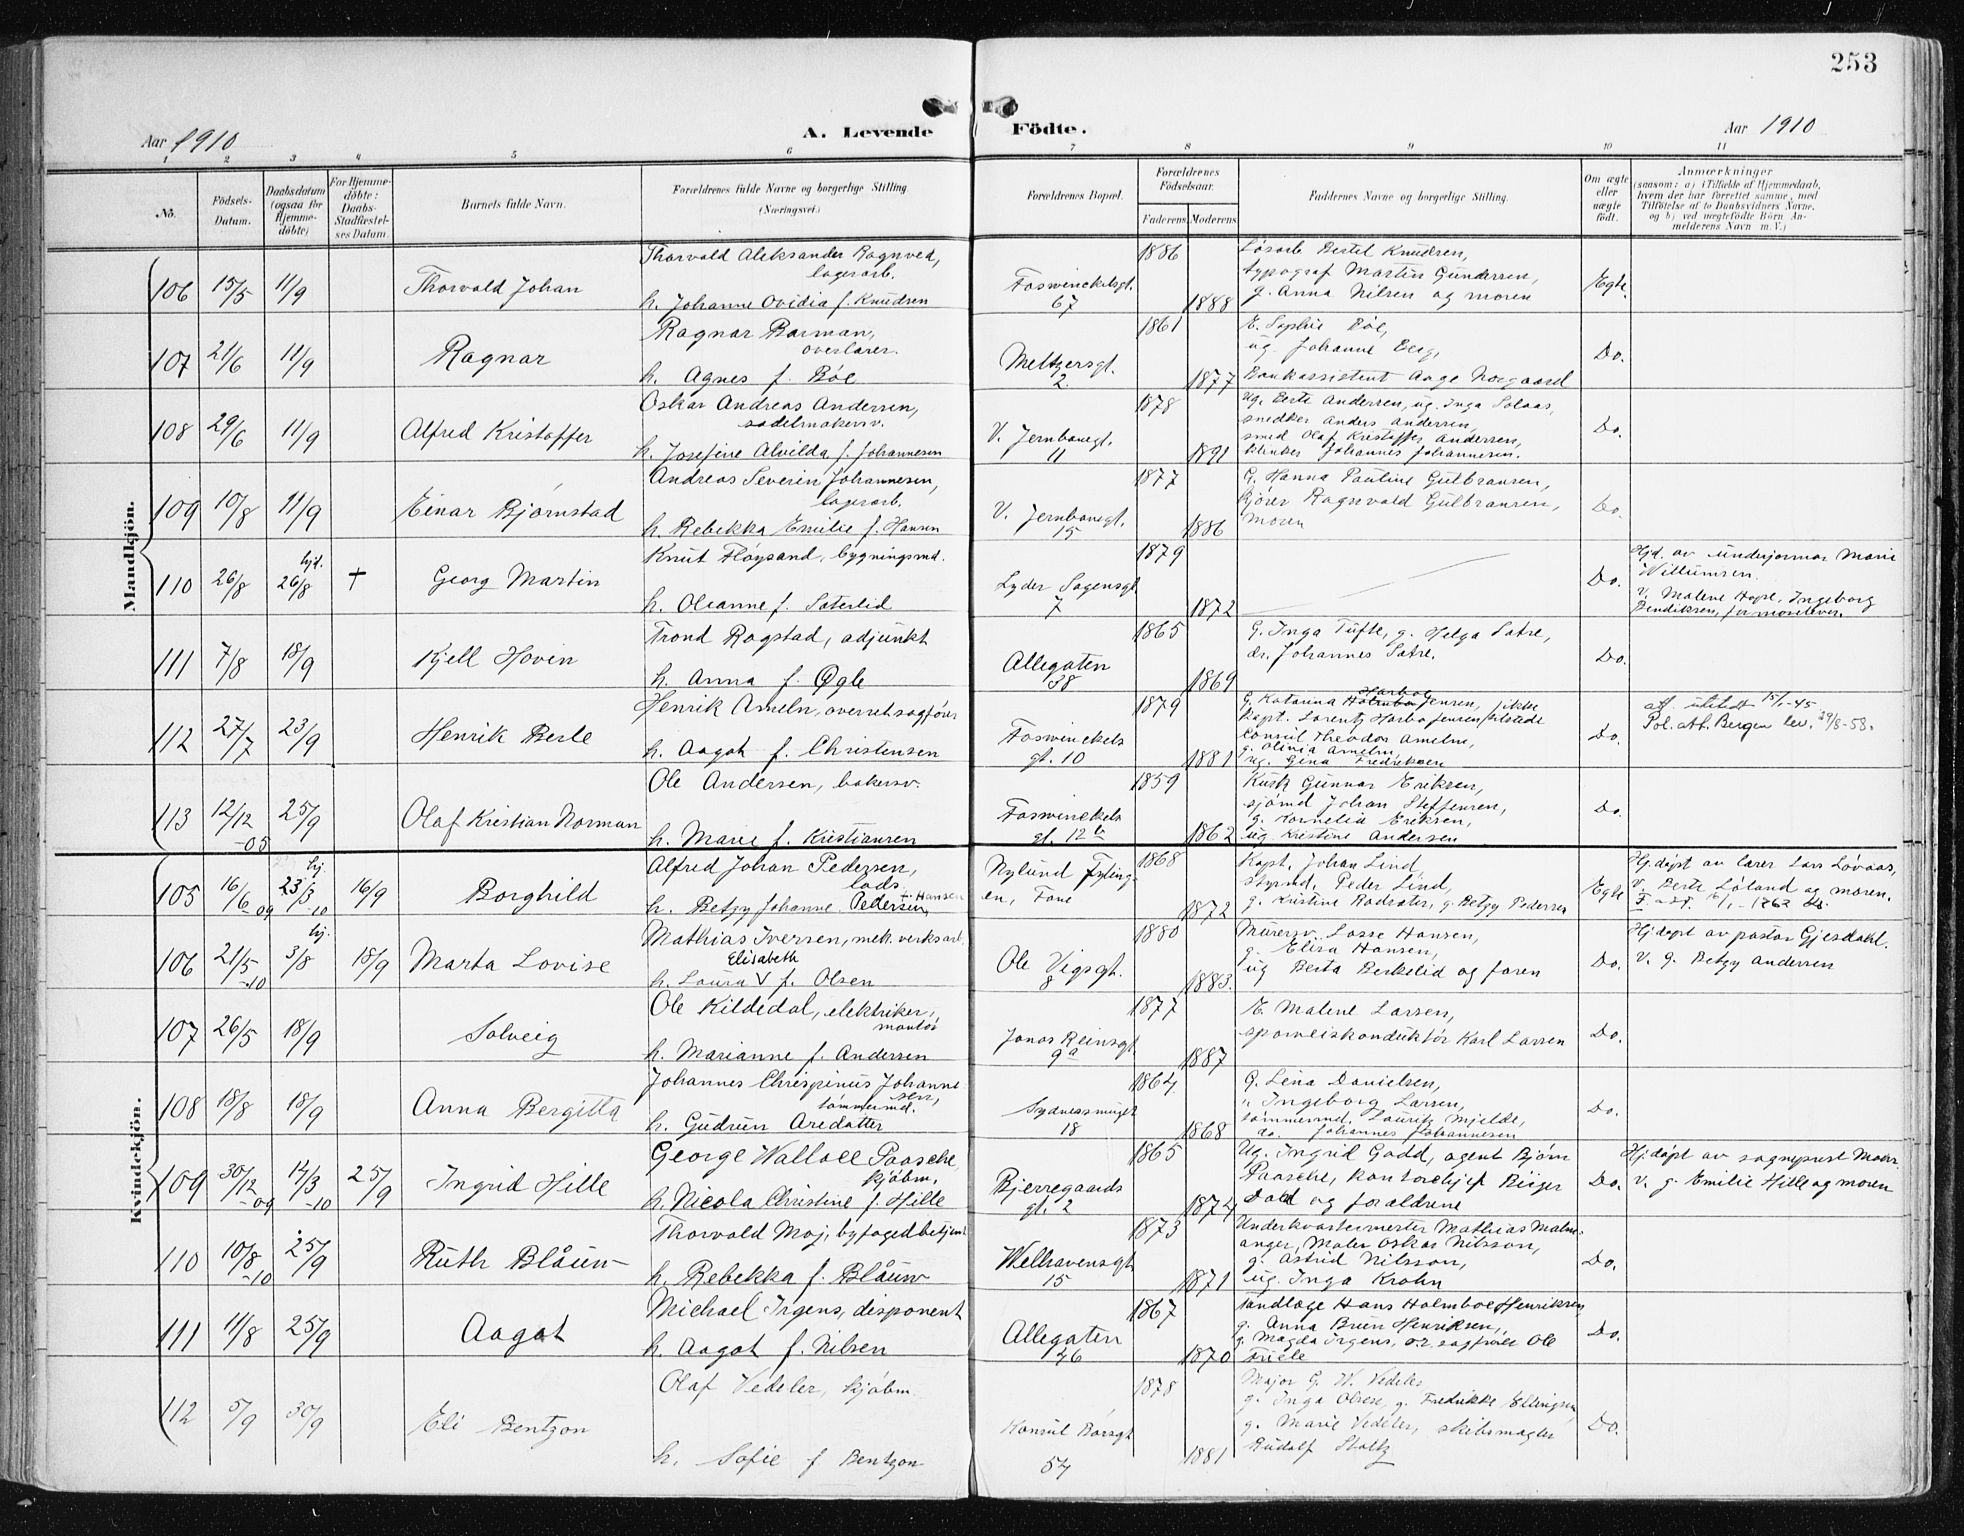 253
Aar 1910
A. Levende
Födte.
Aar 1910
1
2
3
4
5
6
7
8
9
10
11
No.
Födsels-
Datum.
Daabsdatum
(ogsaa for
Hjemme-
döbte)
For Hjemme-
döbte:
Daabs-
Stadfæstel-
ses Datum.
Barnets fulde Navn.
Forældrenes fulde Navne og borgerlige Stilling
(Næringsvei.)
Forældrenes Bopæl.
Forældrenes
Födselsaar.
Faderens
Moderens
Faddernes Navne og borgerlige Stilling.
Om ægte
eller
uægte
födt.
Anmærkninger
(saasom: a) i Tilfælde af Hjemmedaab,
hvem der har forrettet samme, med
Tilföielse af to Daabsvidners Navne.
og b) ved uægtefödte Börn An-
melderens Navn m. V.)
Mandkjön.
106 15/5 11/9 Thorvald Johan
Thorvald Aleksander Ragnved,
lagerarb.
h. Johanne Ovidia f. Knudsen
Fosswinckelsgt.
67
1886
1888
Løsarb Bertel Knudsen,
typograf Martin Gundersen,
g. Anna Nilsen og moren
Egte.
107 21/6 11/9 Ragnar
Ragnar Barman,
overlærer.
h. Agnes f. Bøe
Meltzersgt.
2.
1861
1877
E. Sophie Bøe,
ug. Johanne Berg,
Bankassistent Aage Norgaard
Do.
108 29/6 11/9 Alfred Kristoffer
Oskar Andreas Andersen,
sadelmakersv.
h. Josefine Alvilda f. Johannesen
V. Jernbanegt.
11
1878
1891
Ug. Berte Andersen, ug. Inga Solaas,
snedker Anders Andersen,
smed Olaf Kristoffer Andersen,
klinker Johannes Johannesen.
Do.
109 10/8 11/9 Einar Bjørnstad
Andreas Severin Johannesen,
lagerarb.
h. Rebekka Emilie f. Hansen
V. Jernbanegt.
15
1877
1886
G. Hanna Pauline Gulbransen,
kjører Ragnvald Gulbransen,
moren
Do.
110 26/8 hjd. 26/8 † Georg Martin
Knut Fløysand, bygningsmd.
h. Oleanne f. Sæterlid
Lyder Sagensgt.
7
1879
1872
Do.
Hjd. av underjormor Marie
Willumsen.
v. Malene Hope, Ingeborg
Bendiksen,
111 7/8 18/9 Kjell Hovin
Trond Rogstad, adjunkt
h. Anna f. Øgle
Allegaten
38
1865
1869
G. Inga Tufte, g. Helga Sætre,
dr. Johannes Sætre.
Do.
112 27/7 23/9 Henrik Berle
Henrik Ameln, overretsagfører
h. Aagot f. Christensen
Fosswinckels
gt. 10
1879
1881
Harboe
G. Katarina Jensen, ikke
Kapt. Lorentz Harboe Jensen tilstede
Consul Theodor Ameln,
g. Olivia Ameln,
ug. Gina Fredriksen
Do.
att. utstedt 15/1-45
Pol. att. Bergen lev. 29/8-58.
113 12/12 -05 25/9 Olaf Kristian Norman
Ole Andersen, bakersv.
h. Marie f. Kristiansen
Fosswinckels
gt. 12 b
1859
1862
Kusk Gunnar Eriksen,
sjømd Johan Steffensen,
g. Kornelia Eriksen,
ug. Kristine Andersen
Do.
Kvindekjön.
105 16/6 -09 hj. 23/3 -10 16/9 Borghild
Alfred Johan Pedersen,
lods
h. Betzy Johanne Pedersen f. Hansen
Nylund Fylling-
en, Fane
1868
1872
Kapt. Johan Lind,
styrmd. Peder Lind,
g. Kristine Rødsæter, g. Betzy Pedersen
Egte
Hj.døpt av lærer Lars Løvaas,
v. Berte Løland og moren.
106 21/5 -10 hj. 3/8 18/9 Marta Lovise
Mathias Iversen, mek. verksarb.
Elisabeth
h. Laura V f. Olsen
Ole Vigsgt.
8
1880
1883.
Murersv. Lasse Hansen,
g. Elisa Hansen,
ug Berta Berkelid og faren
Do.
Hj.døpt av pastor Gjesdahl.
v. g. Betzy Andersen
107 26/5 18/9 Solveig
Ole Kildedal, elektriker,
montør
h. Marianne f. Andersen
Jonas Reinsgt
9a
1877
1887
E. Malene Larsen,
sporveiskonduktør Karl Larsen
Do.
108 18/8 18/9 Anna Bergitta
Johannes Chrispinus Johanne-
sen,
tømmermd.
h. Gudrun Aredatter
Sydnessmuget
18
1864
1868
G. Lena Danielsen,
" Ingeborg Larsen,
tømmermd. Lauritz Mjelde,
do. Johannes Johannesen
Do.
109 30/12 -09 14/3 -10 25/9 Ingrid Hille
George Wallace Paasche,
kjøbm.
h. Nicola Christine f. Hille
Bjerregaards
gt. 2
1865
1874
Ug. Ingrid Gadd, agent Bjørn
Paasche, kontorchef Birger
Dahl og forældrene
Do.
Hj.døpt av sogneprest Mohr.
v. g. Emilie Hille og moren
110 10/8 -10 25/9 Ruth Blåuw
Thorvald Moj, byfogedbetjent
h. Rebekka f. Blåuw
Welhavensgt.
15
1873
1871
Underkvartermester Mathias Malm-
anger, Maler Oskar Nilsson,
g. Astrid Nilsson,
ug. Inga Krohn
Do.
111 11/8 25/9 Aagot
Michael Irgens, disponent
h. Aagot f. Nilsen
Allegaten
46
1867
1870
Tandlæge Hans Holmboe Henriksen,
g. Anna Brun Henriksen,
g. Magda Irgens, o.r. sagfører Ole
Friele
Do.
112 5/9 30/9 Eli Bentzon
Olaf Vedeler, kjøbm.
h. Sofie f Bentzon
Konsul Børsgt
54
1878
1881
Major G. W. Vedeler
g. Inga Olsen, g. Fredrikke Ellingsen,
g. Marie Vedeler, skibsmægler
Rudolf Stoltz
Do.